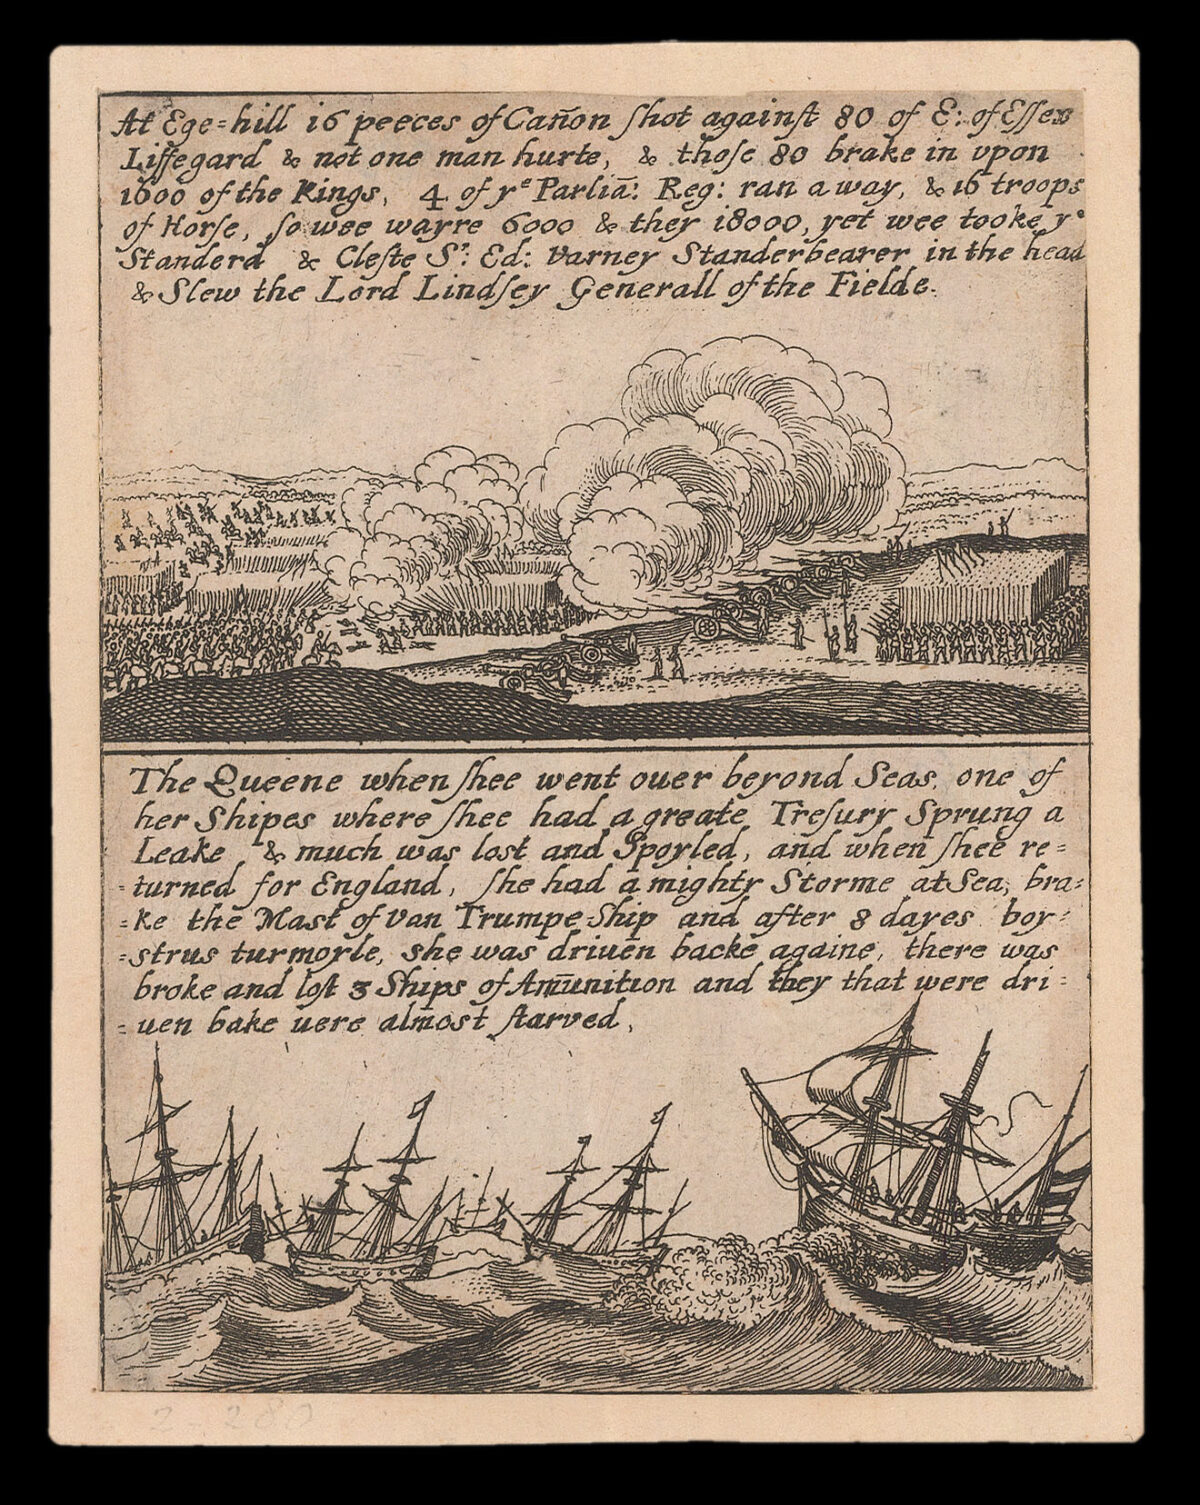 At Ege=hill 16 peeces of Cañon ſhot againſt 80 of E: of Eſſex
Liffegard & not one man hurte, & thoſe 80 brake in vpon
1600 of the Kings, 4 of yᵉ Parliā: Reg: ran away, & 16 troops
of Horſe, ſo wee wayre 6000 & they 18000, yet wee tooke yᵉ
Standerd & Cleſte Sʳ: Ed: Varney Standerbearer in the head
& Slew the Lord Lindſey Generall of the Fielde.
The Queene when ſhee went ouer beyond Seas, one of
her Shipes where ſhee had a greate Treſury Sprung a
Leake & much was lost and Spoyled, and when ſhee re=
=turned for England, ſhe had a mighty Storme at Sea, bra=
=ke the Mast of Van Trumpe Ship and after 8 dayes boy=
=strus turmoyle, she was driuen backe againe, there was
broke and loſt 3 Ships of Am̄unition and they that were dri=
=uen bake uere almost ſtarved,
2-280